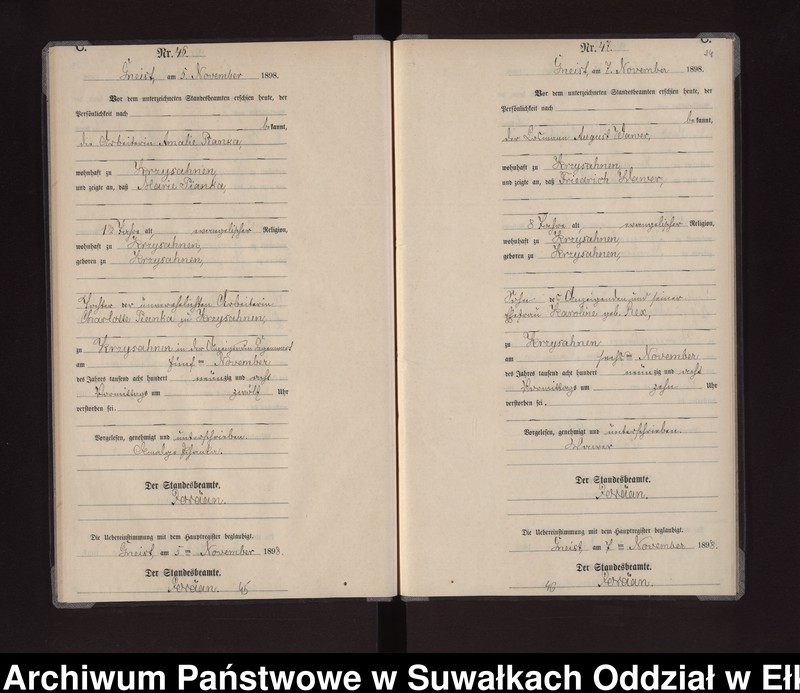 C.
Nr. 46.
Gneist, am 5. November 1898.
Vor dem unterzeichneten Standesbeamten erschien heute, der
Persönlichkeit nach
bekannt,
die Arbeiterin Amalie Pianka,
wohnhaft zu Krzysahnen,
und zeigte an, daß Marie Pianka,
12 Jahre alt evangelischer Religion,
wohnhaft zu Krzysahnen,
geboren zu Krzysahnen,
Tochter der unverehelichten Arbeiterin
Charlotte Pianka zu Krzysahnen,
zu Krzysahnen in der Anzeigenden Gegenwart
am fünften November
des Jahres tausend acht hundert neunzig und acht
Vormittags um zwölf Uhr
verstorben sei.
Vorgelesen, genehmigt und unterschrieben.
Amalye
Der Standesbeamte.
Die Uebereinstimmung mit dem Hauptregister beglaubigt.
Gneist am 5 ten November 1898.
Der Standesbeamte.
C.
Nr. 47.
24
Gneist, am 7. November 1898.
Vor dem unterzeichneten Standesbeamten erschien heute, der
Persönlichkeit nach
bekannt,
der Losmann August Wawer,
wohnhaft zu Krzysahnen,
und zeigte an, daß Friedrich Wawer,
8 Jahre alt evangelischer Religion,
wohnhaft zu Krzysahnen,
geboren zu Krzysahnen,
Sohn des Anzeigenden und seiner
Ehefrau Karoline geb. Rex,
zu Krzysahnen
am sechsten November
des Jahres tausend acht hundert neunzig und acht
Vormittags um zehn Uhr
verstorben sei.
Vorgelesen, genehmigt und unterschrieben.
Wawer
Der Standesbeamte.
Die Uebereinstimmung mit dem Hauptregister beglaubigt.
Gneist am 7 ten November 1898.
Der Standesbeamte.
Archiwum Państwowe w Suwałkach Oddział w Ełk